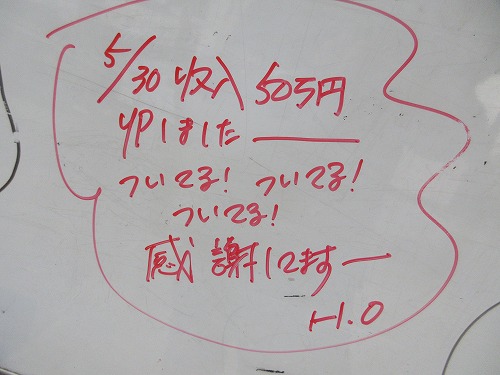 5/30 収入 50万円
UPしました——
ついてる! ついてる!
ついてる!
感謝してます—
H.O